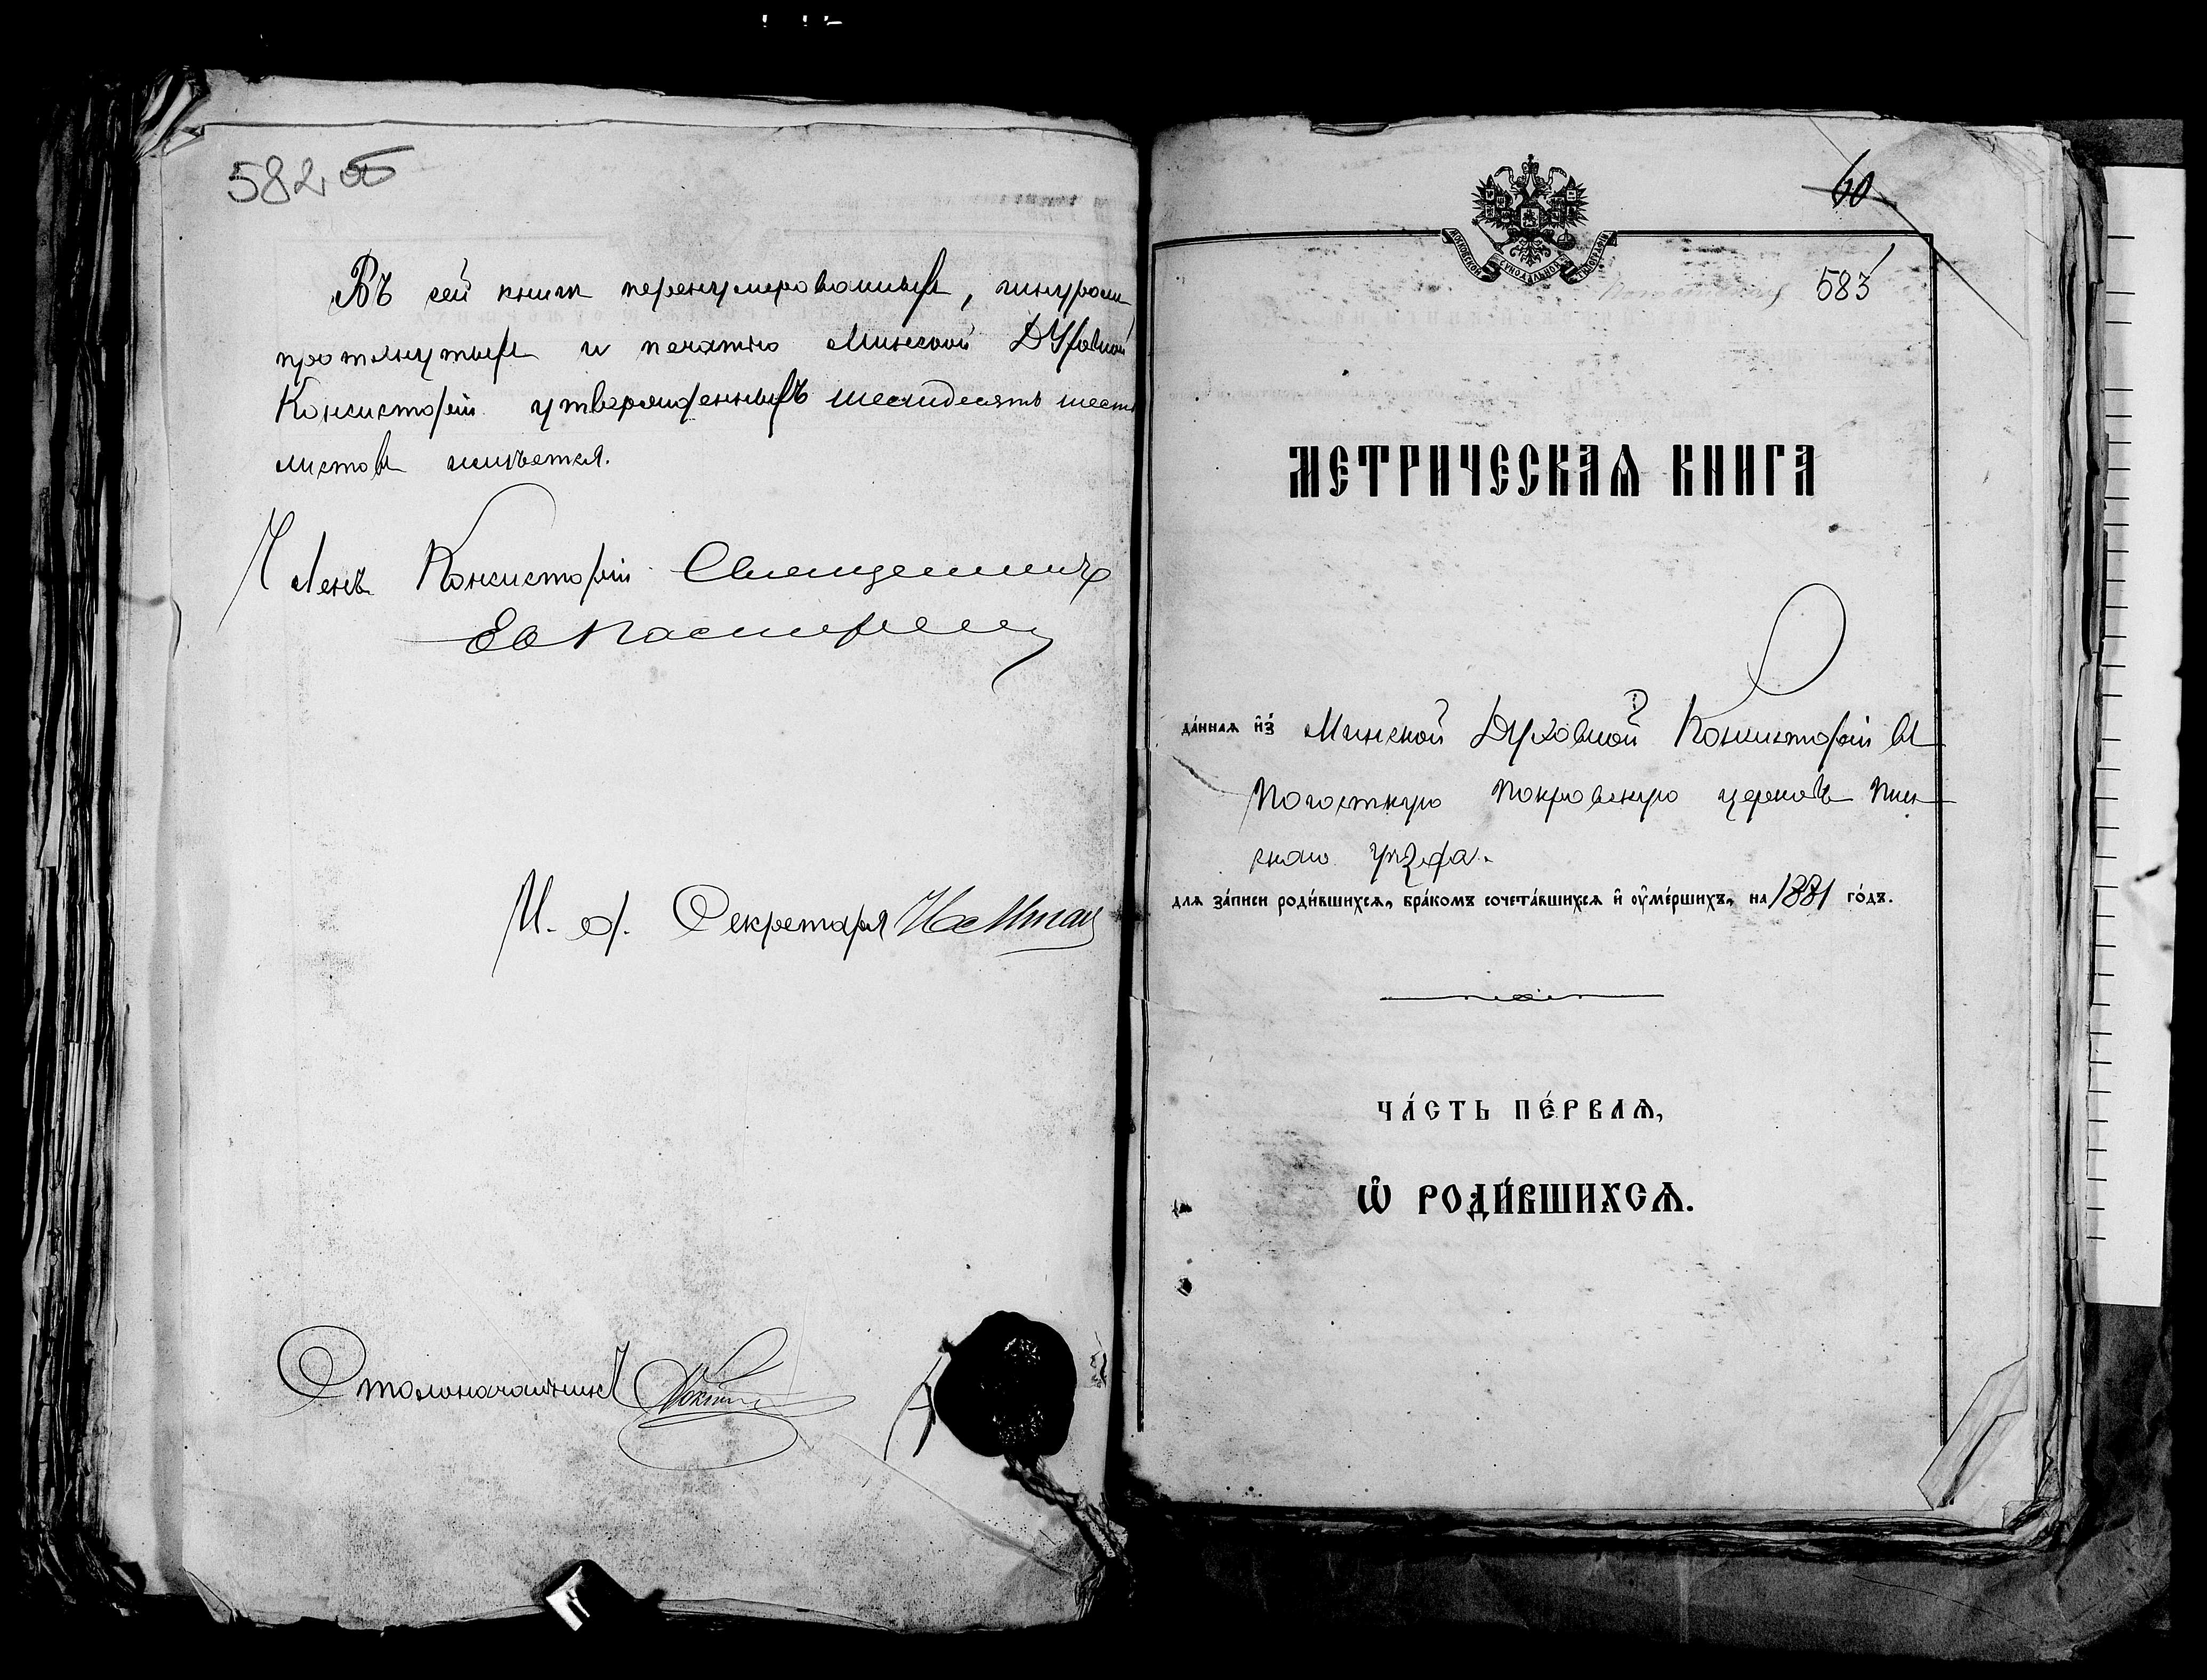 582 об
Въ сей книгѣ перенумерованныхъ, шнуромъ
протянутыхъ и печатію Минской Духовной
Консисторіи утвержденныхъ шестьдесятъ шесть
листовъ имѣется.
Членъ Консисторіи Священникъ
И. д. Секретаря
Столоначальникъ
60
МОСКОВСКОЙ СѴНОДАЛЬНОЙ ТИПОГРАФІИ
583
МЕТРИЧЕСКАѦ КНИГА
да́ннаѧ и҆з̾ Минской Духовной Консисторіи въ
Погостскую Покровскую церковь Пин
скаго уѣзда.
для за́писи роди́вшихсѧ, бра́комъ сочета́вшихсѧ и҆ ѹ҆ме́ршихъ, на 1881 го́дъ.
ЧА́СТЬ ПЕ́РВАѦ,
Ѡ҆ РОДИ́ВШИХСѦ.